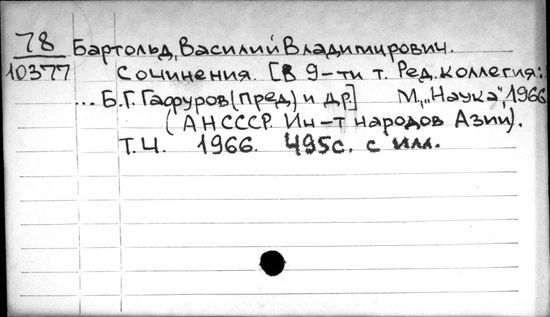 78 Бартольд, Василий Владимирович.
10377 Сочинения. [В 9-ти т. Ред. коллегия:
... Б.Г. Гафуров (пред) и др.] М., "Наука", 1966
(АН СССР. Ин-т народов Азии).
Т.4. 1966. 495с. с илл.